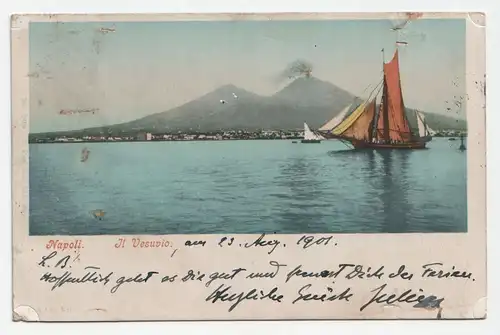 Napoli. Il Vesuvio. am 23. Aug. 1901.
L. B.!
Hoffentlich geht es Dir gut und freust Dich der Ferien.
Herzliche Grüsse